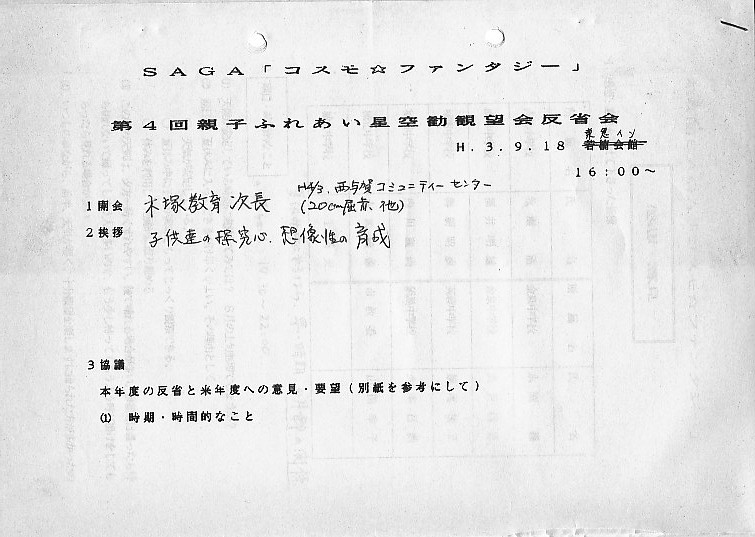 SAGA「コスモ☆ファンタジー」
第4回親子ふれあい星空勧観望会反省会
東急イン
H.3.9.18 若楠会館
16:00～
H4/3. 西与賀コミュニティーセンター
1開会 木塚教育次長 (20cm屈赤 他)
2挨拶 子供達の探究心. 想像性の育成
3協議
本年度の反省と来年度への意見・要望(別紙を参考にして)
(1) 時期・時間的なこと